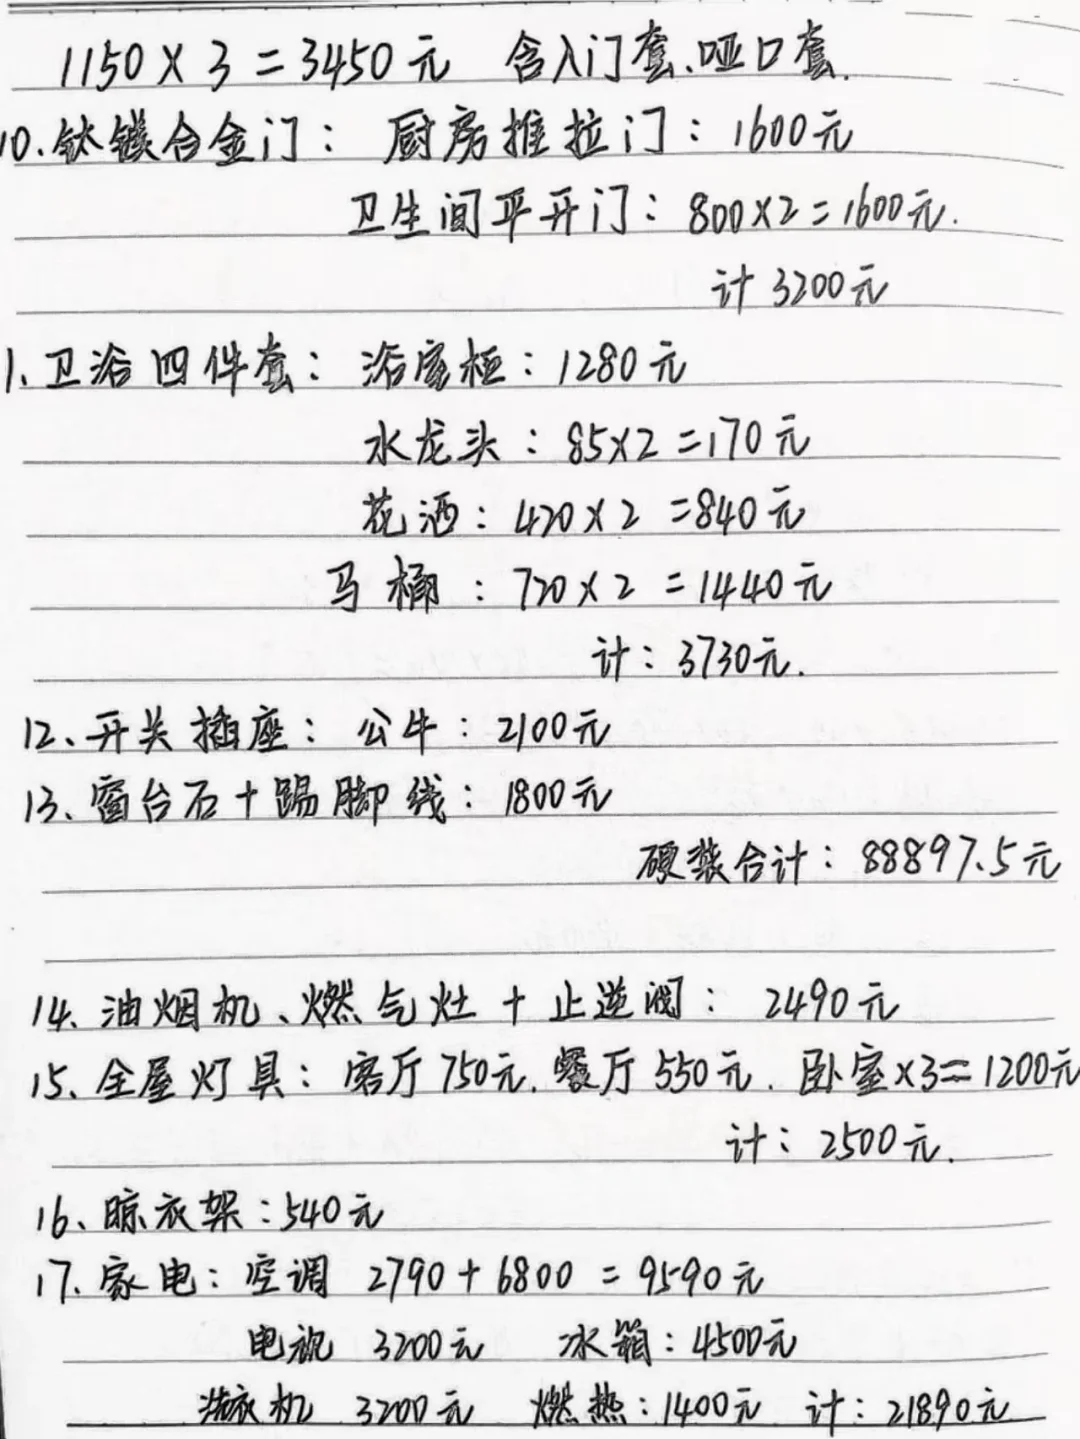 1150×3=3450元 含入门套、哑口套.
10.钛镁合金门：厨房推拉门：1600元
卫生间平开门：800×2=1600元.
计3200元
1、卫浴四件套：浴室柜：1280元
水龙头：85×2=170元
花洒：420×2=840元
马桶：720×2=1440元
计：3730元.
12、开关插座：公牛：2100元
13、窗台石+踢脚线：1800元
硬装合计：88897.5元
14、油烟机、燃气灶+止逆阀：2490元
15、全屋灯具：客厅750元.餐厅550元.卧室×3=1200元
计：2500元.
16、晾衣架：540元
17、家电：空调 2790+6800=9590元
电视 3200元 冰箱：4500元
洗衣机 3200元 燃热：1400元 计：21890元